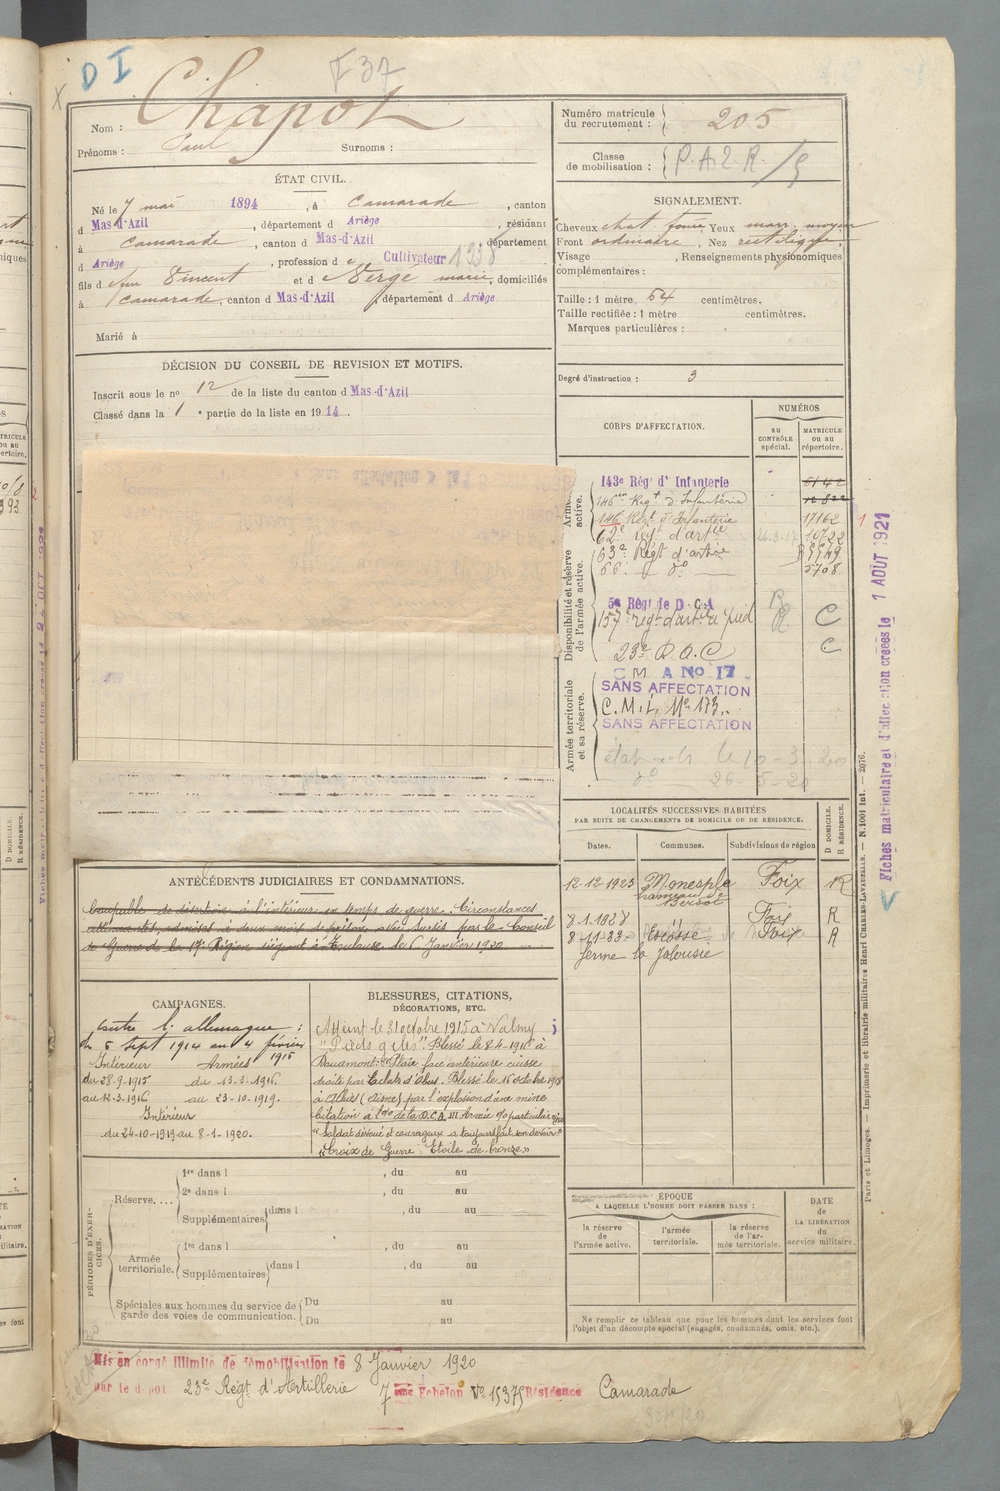 D I
F 37
Nom : Chapot
Prénoms : Paul Surnoms :
Numéro matricule du recrutement : 205
Classe de mobilisation : P.A.2.R./5
ÉTAT CIVIL.
Né le 7 mai 1894, à Camarade, canton
d Mas-d'Azil, département d Ariège, résidant
à Camarade, canton d Mas-d'Azil, département
d Ariège, profession d e Cultivateur
fils d feu Vincent et d Verge marie, domiciliés
à Camarade, canton d Mas-d'Azil, département d Ariège
Marié à
SIGNALEMENT.
Cheveux chat. foncé Yeux marr. moyen
Front ordinaire, Nez rectiligne,
Visage , Renseignements physionomiques
complémentaires :
Taille : 1 mètre 64 centimètres.
Taille rectifiée : 1 mètre centimètres.
Marques particulières :
Degré d'instruction : 3
DÉCISION DU CONSEIL DE REVISION ET MOTIFS.
Inscrit sous le no 12 de la liste du canton d Mas-d'Azil
Classé dans la 1 e partie de la liste en 1914.
CORPS D'AFFECTATION.
NUMÉROS
au CONTRÔLE spécial.
MATRICULE ou au répertoire.
Armée active.
143e Régt d'Infanterie
146en Regt d'Infanterie
146 Regt d'Infanterie 17162
62e regt d'artie 10722
Disponibilité et réserve de l'armée active.
63e Regt d'artie
66e do 5708
5e Régt de D.C.A
157e regt d'artie à pied R. C
23e D.O.C C
Armée territoriale et sa réserve.
C M A No 17
SANS AFFECTATION
C. Mil. No 173.
SANS AFFECTATION
le 10-3-20
do 26-5-20
Fiches matriculaire et d'affectation créées le 1 AOUT 1921
LOCALITÉS SUCCESSIVES HABITÉES
PAR SUITE DE CHANGEMENTS DE DOMICILE OU DE RÉSIDENCE.
Dates. Communes. Subdivisions de région D DOMICILE. R RÉSIDENCE.
12-12-1923 Monesple Foix R
hameau de Bersot
8-1-1928 " Foix R
8-11-33 Escosse Foix R
ferme la Jalousie
ANTÉCÉDENTS JUDICIAIRES ET CONDAMNATIONS.
Coupable de désertion à l'intérieur en temps de guerre. Circonstances
atténuantes, admises à deux mois de prison avec sursis par le Conseil
de Guerre de la 17e Région siégeant à Toulouse le 6 Janvier 1920
CAMPAGNES.
Contre l'allemagne :
du 6 sept 1914 au 4 février 1915
Intérieur Armées
du 28-9-1915 du 13-3-1916
au 12-3-1916 au 23-10-1919.
Intérieur
du 24-10-1919 au 8-1-1920.
BLESSURES, CITATIONS, DÉCORATIONS, ETC.
Atteint le 31 octobre 1915 à Valmy
"Pieds gelés" Blessé le 8-4-1916 à
Beaumont : Plaie face antérieure cuisse
droite par Eclats d'obus. Blessé le 15 octobre 1918
à Athies (Aisne) par l'explosion d'une mine
Citation à de la D.C.A. III Armée
"Soldat dévoué et courageux a toujours fait son devoir"
"Croix de Guerre : Etoile de bronze"
PÉRIODES D'EXERCICES.
Réserve....
1re dans l , du au
2e dans l , du au
Supplémentaires dans l , du au
Armée territoriale.
1re dans l , du au
Supplémentaires dans l , du au
Spéciales aux hommes du service de garde des voies de communication.
Du au
Du au
ÉPOQUE
A LAQUELLE L'HOMME DOIT PASSER DANS :
la réserve de l'armée active.
l'armée territoriale.
la réserve de l'armée territoriale.
DATE de LA LIBÉRATION du service militaire.
Ne remplir ce tableau que pour les hommes dont les services font
l'objet d'un décompte spécial (engagés, condamnés, omis, etc.).
Paris et Limoges. — Imprimerie et librairie militaires Henri CHARLES-LAVAUZELLE. — N. 1001 int. — 2076.
Mis en congé illimité de démobilisation le 8 Janvier 1920
par le dépôt 23e Régt d'Artillerie 7ème Echelon No 15375 Résidence Camarade